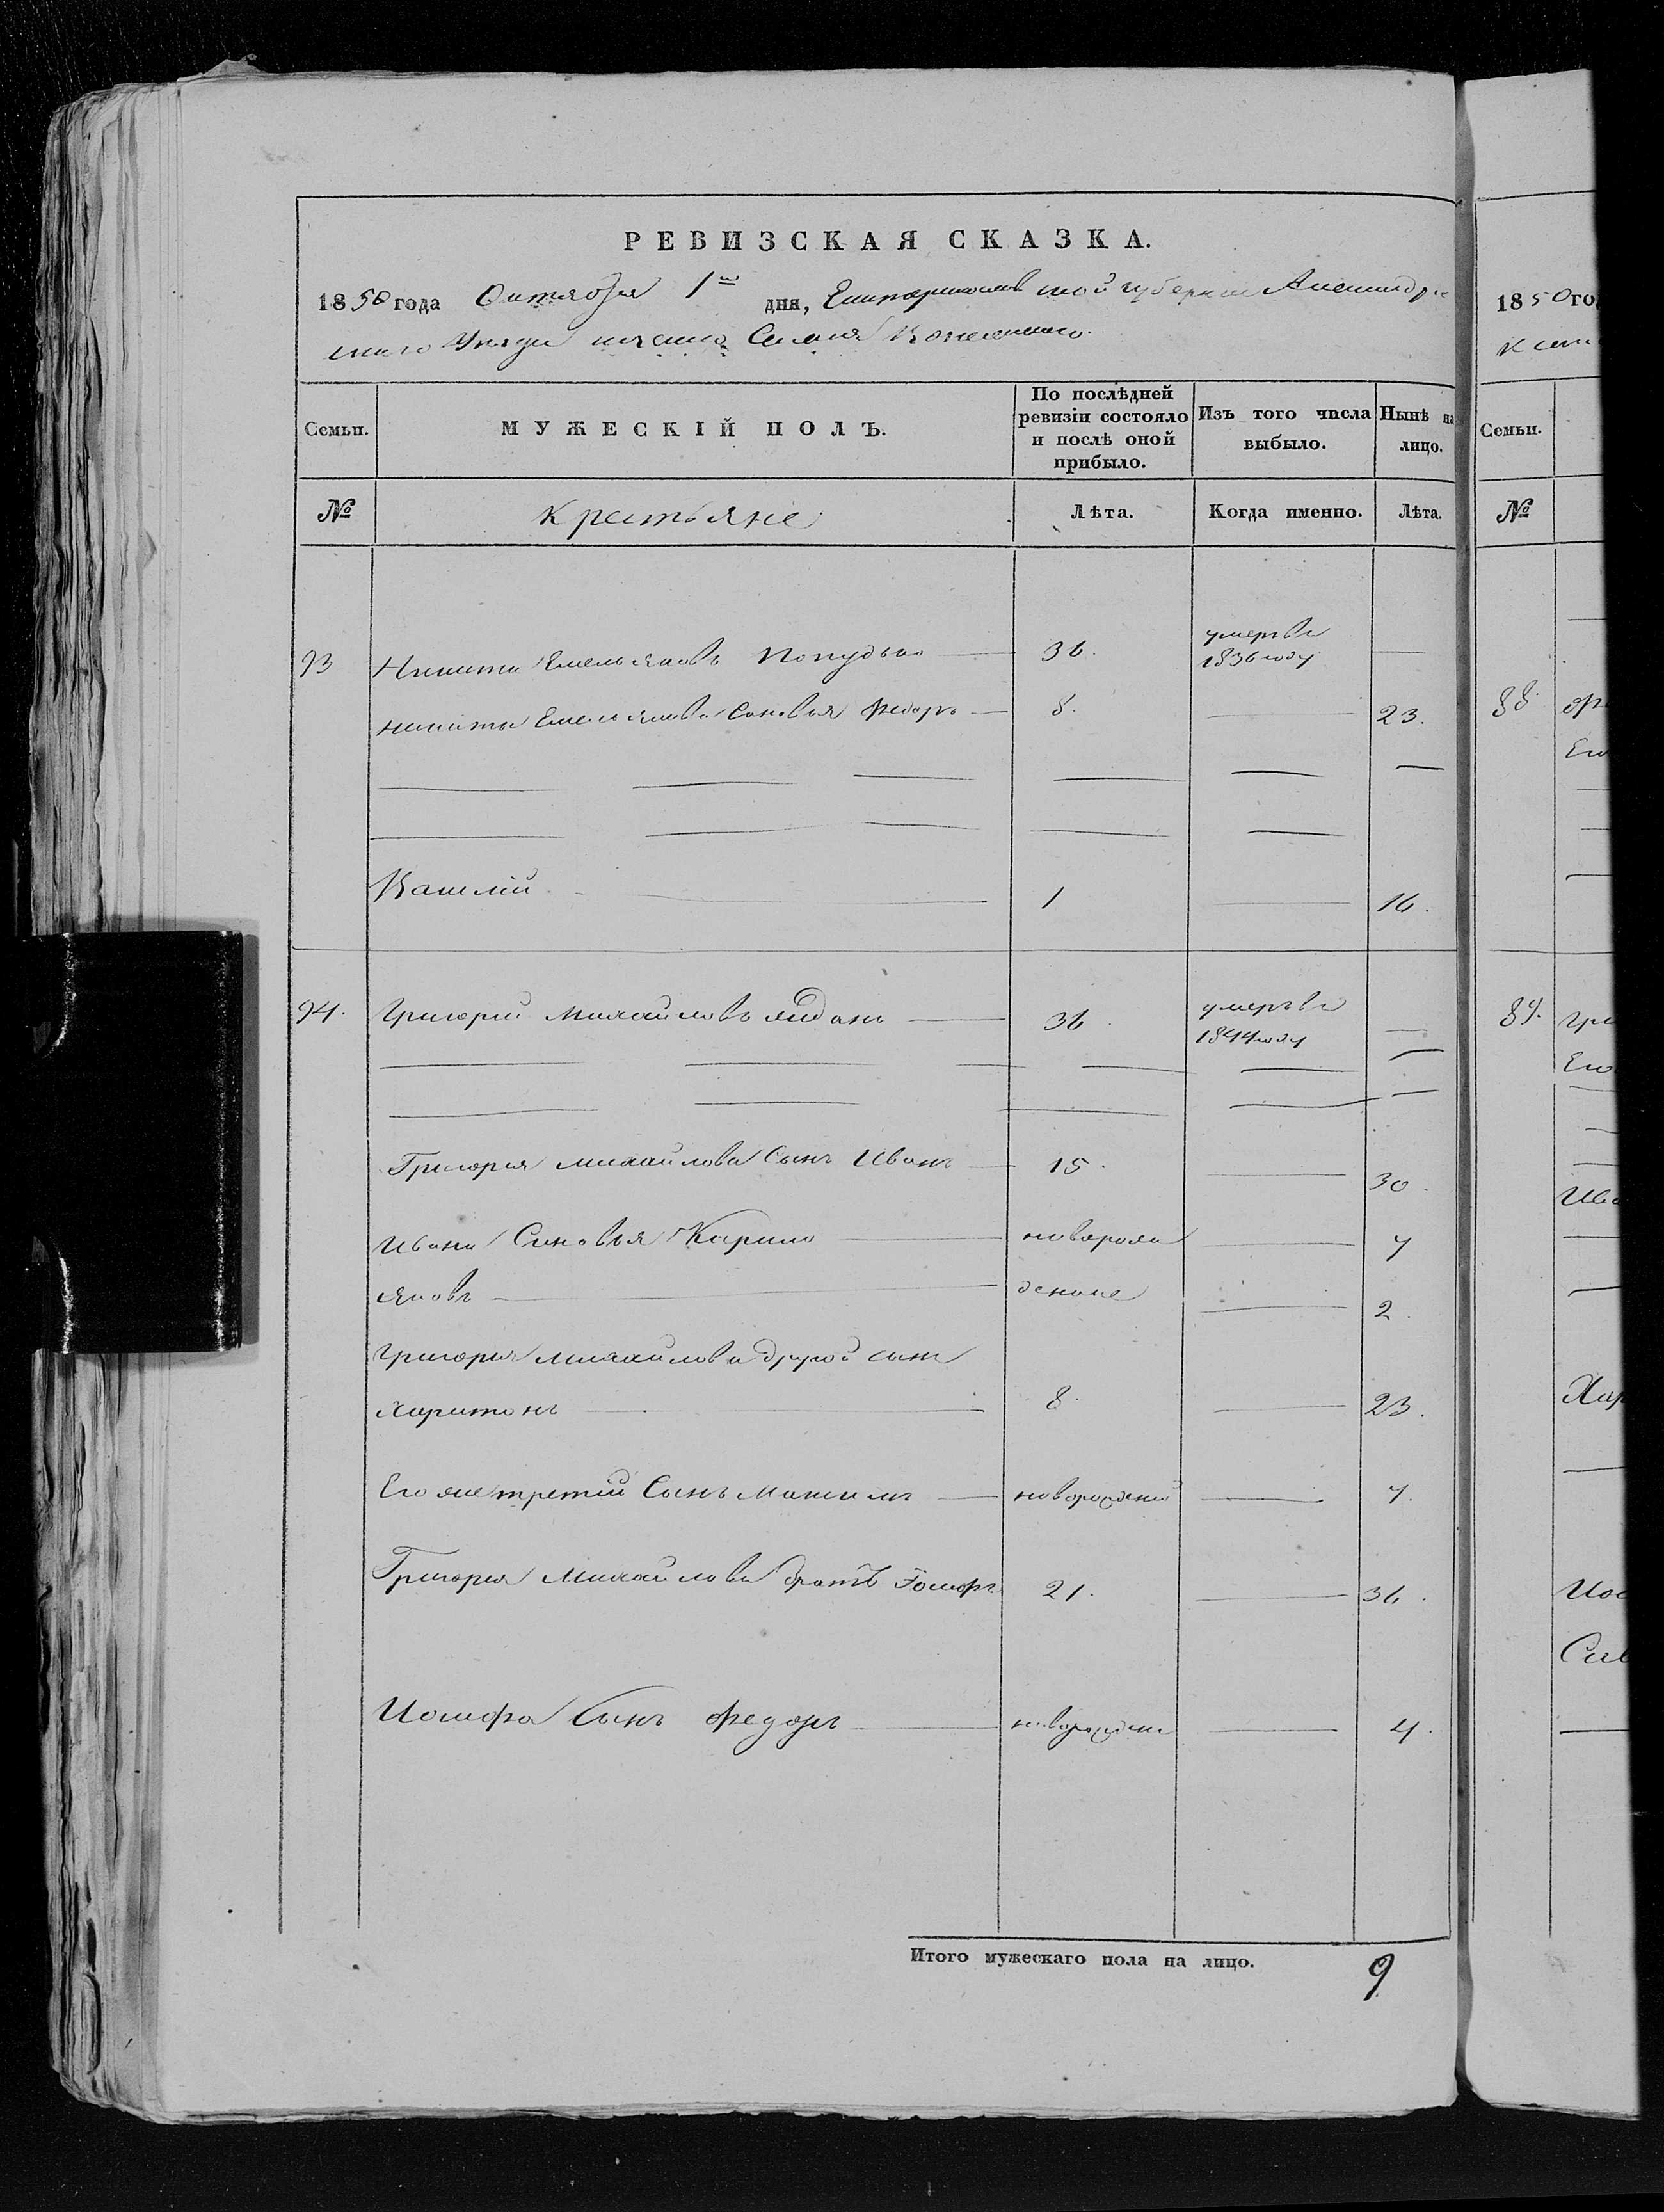 РЕВИЗСКАЯ СКАЗКА.
1850 года Октября 1го дня, Екатеринославской губернии Александрий
скаго Уезда
Семьи.
МУЖЕСКІЙ ПОЛЪ.
По послѣдней ревизіи состояло и послѣ оной прибыло.
Изъ того числа выбыло.
Нынѣ на лицо.
№
Крестьяне
Лѣта.
Когда именно.
Лѣта.
93 Никита Емельяновъ 36. умеръ въ 1836 году
Никиты Емельянова Сыновья Федоръ 8. 23.
Василій 1 16.
94. Григорій Михайловъ 36. умеръ въ 1844 году
Григорія Михайлова Сынъ Иванъ 15. 30.
Ивана Сыновья новорож 7
Яковъ денные 2.
Григорія Михайлова другой сынъ
Харитонъ 8. 23.
Его же третій Сынъ Максимъ новорожденный 7.
Григорія Михайлова братъ Іосифъ 21. 36.
Иосифа Сынъ Федоръ новорожден 4.
Итого мужескаго пола на лицо. 9
1850 го
Семьи.
№
88.
Его
89.
Гри
Его
Ива
Хар
Иос